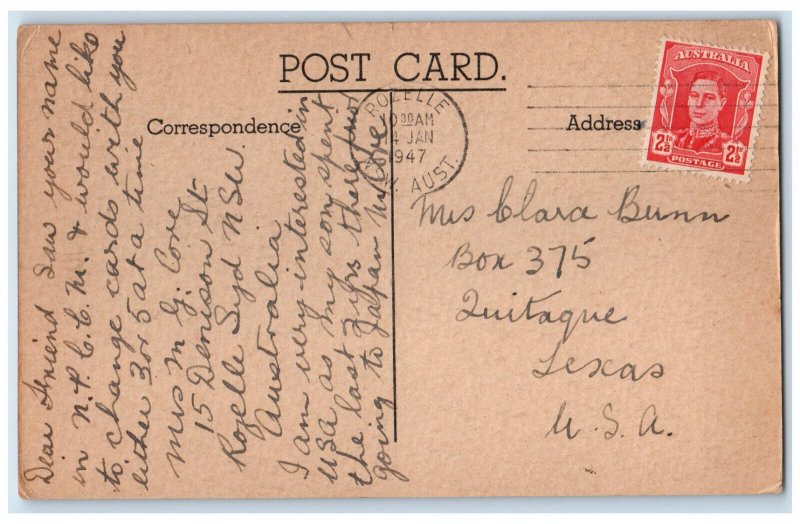 POST CARD.
Correspondence
Address
Dear Friend Saw your name
in N.P.C.C.M. & would like
to change cards with you
either 3 or 5 at a time
Mrs M G. Cove
15 Denison St
Rozelle Syd NSW.
Australia
I am very interested in
USA as my son spent
the last 2 yrs there
going to Japan M Cove
ROZELLE
10 30 AM
4 JAN
1947
AUST.
AUSTRALIA
2½D
2½D
POSTAGE
Mrs Clara Bunn
Box 375
Quitaque
Texas
U.S.A.